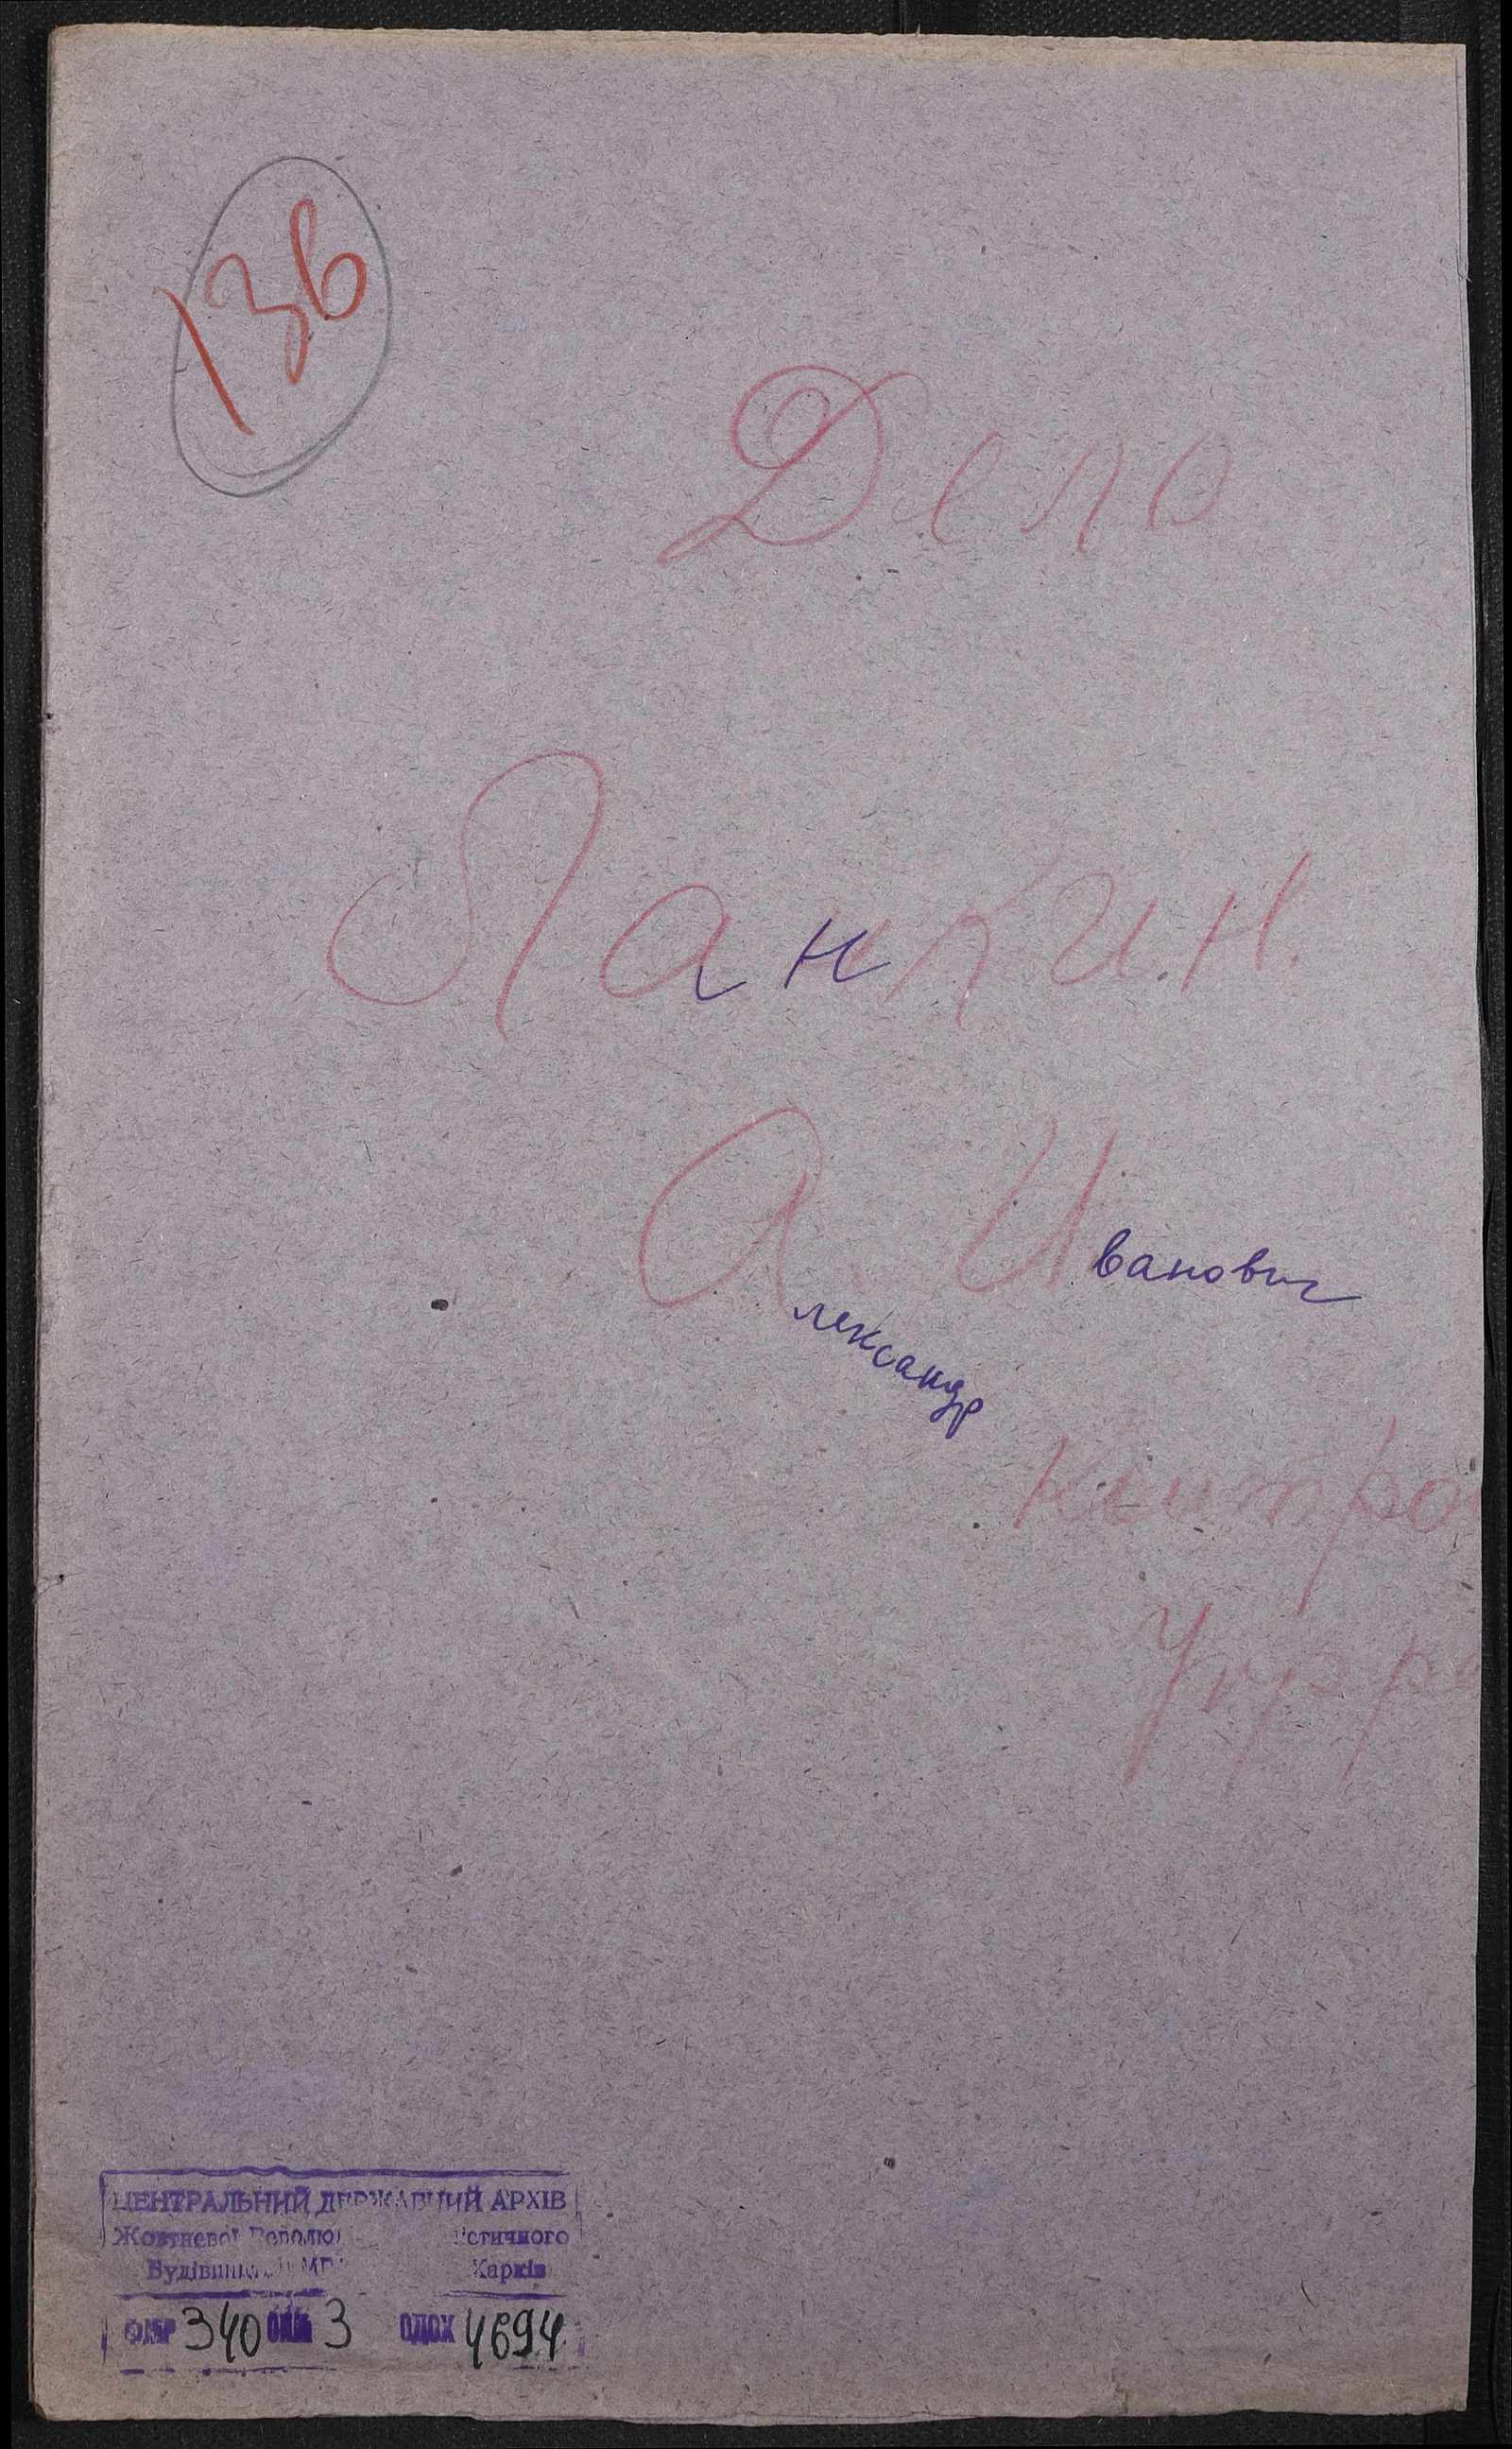 136
Дело
Ланкин.
А. Иванович
лександр
контро
Укр
ЦЕНТРАЛЬНИЙ ДЕРЖАВНИЙ АРХІВ
Жовтневої Револю істичного
Будівниц Харків
ФМР 340 ОПИ 3 ОДОХ 4694